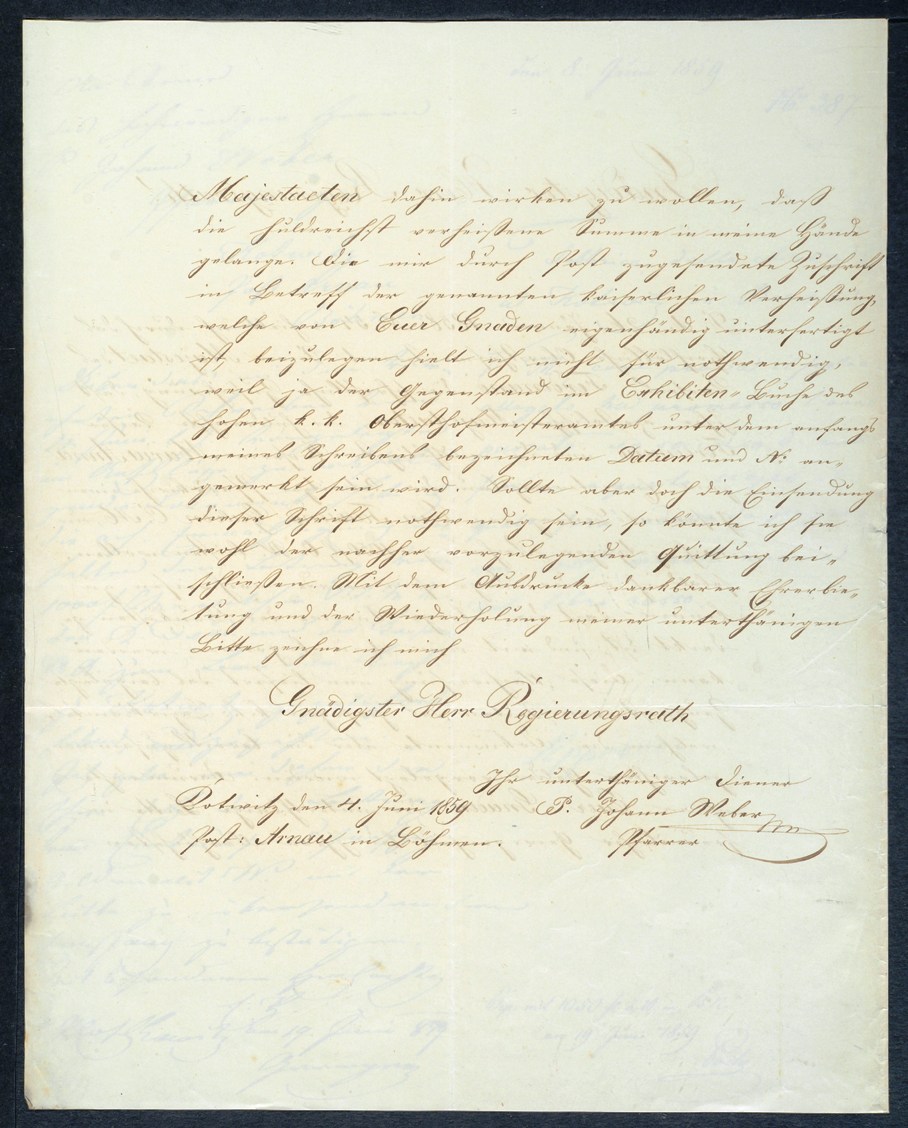 Majestaeten dahin wirken zu wollen, daß
die huldreichst verheißene Summe in meine Hände
gelange. Die mir durch Post zugesendete Zuschrift
in Betreff der genannten kaiserlichen Verheißung,
welche von Euer Gnaden eigenhändig unterfertigt
ist, beizulegen hielt ich nicht für nothwendig,
weil ja der Gegenstand im Exhibiten-Buche des
hohen k. k. Obersthofmeisteramtes unter dem anfangs
meines Schreibens bezeichneten Datum und No: an-
gemerkt sein wird. Sollte aber doch die Einsendung
dieser Schrift nothwendig sein, so könnte ich sie
wohl der nachher vorzulegenden Quittung bei-
schließen. Mit dem Ausdrucke dankbarer Ehrerbie-
tung und der Wiederholung meiner unterthänigen
Bitte zeichne ich mich
Gnädigster Herr Regierungsrath
Ihr unterthäniger Diener
Kotwitz den 4. Juni 1859 P. Johann Weber
Post: Arnau in Böhmen. Pfarrer